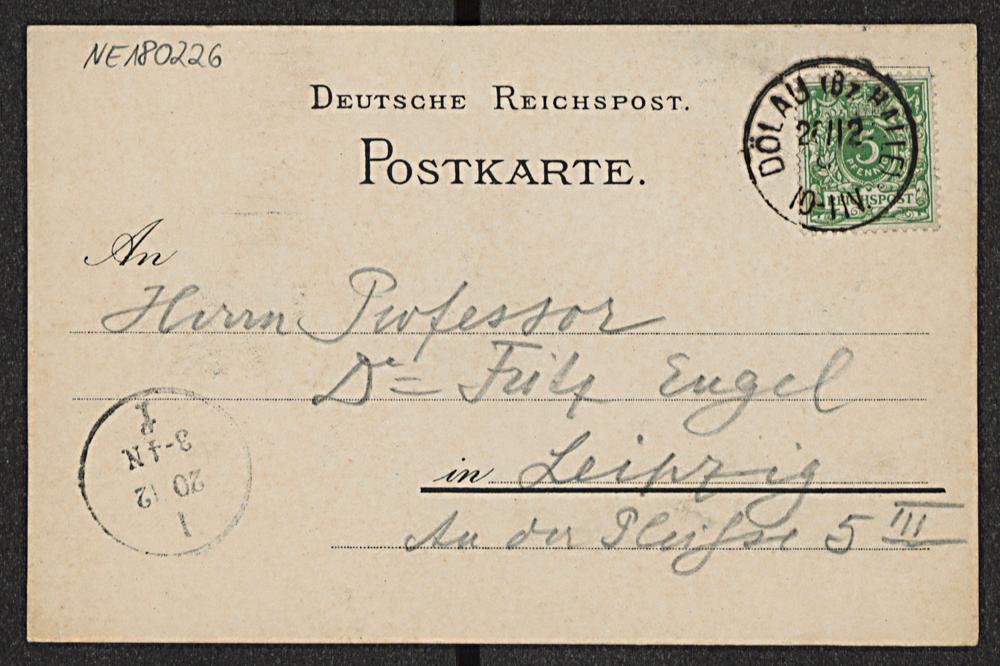 NE180226
DEUTSCHE REICHSPOST.
POSTKARTE.
DÖLAU (Bz. HALLE)
12
10-11V.
5
PFENNIG
REICHSPOST
An
Herrn Professor
Dr= Fritz Engel
in Leipzig
An der Pleiße 5 III
1
20 12
3-4 N